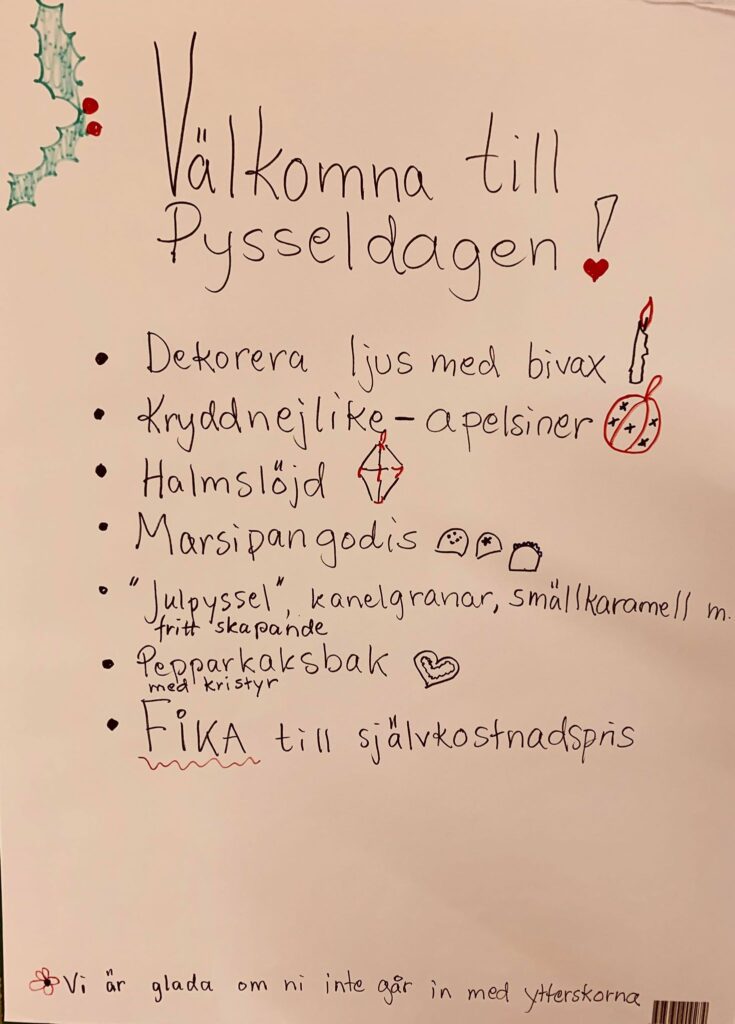 Välkomna till
Pysseldagen!
• Dekorera ljus med bivax
• Kryddnejlike-apelsiner
• Halmslöjd
• Marsipangodis
• "Julpyssel", kanelgranar, smällkaramell m.
fritt skapande
• Pepparkaksbak
med kristyr
• FIKA till självkostnadspris
Vi är glada om ni inte går in med ytterskorna